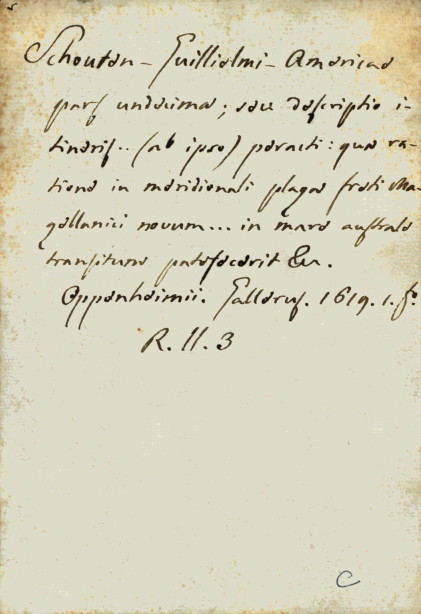 Schouten - Guillielmi - Americae
pars undecima; seu descriptio i-
tineris .. (ab ipso) peracti: qua ra-
tione in meridionali plaga freti Ma-
gellanici novum ... in mare australe
transitum patefecerit &c.
Oppenheimii. Gallerus. 1619. 1. fo.
R. 11. 3
C